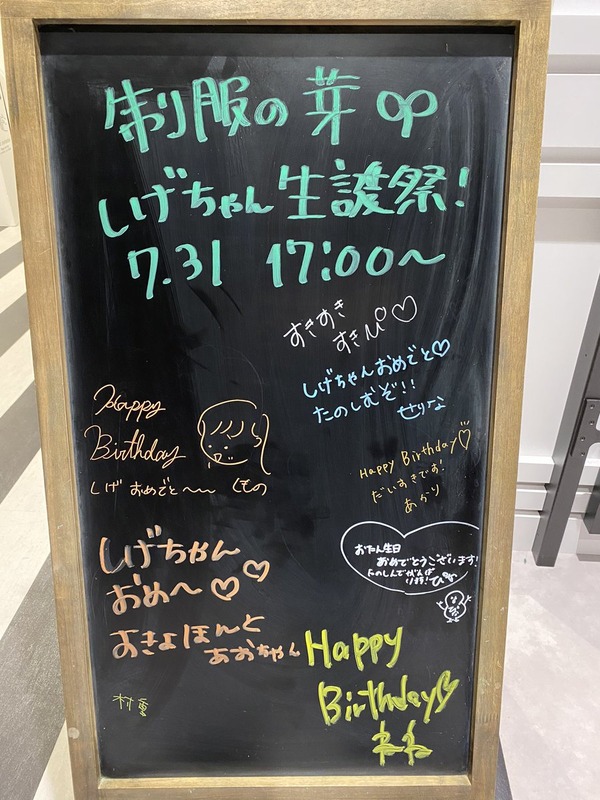 制服の芽
しげちゃん生誕祭!
7.31 17:00~
すきすき
すきぴ♡
しげちゃんおめでと♡
たのしむぞ!!
せりな
Happy
Birthday
しげ おめでと〜〜 ほの
Happy Birthday♡
だいすきです!
あかり
しげちゃん
おめ〜♡♡
おたん生日
おめでとうございます!
たのしんでがんば
りお
あおちゃん
Happy
Birthday
村重